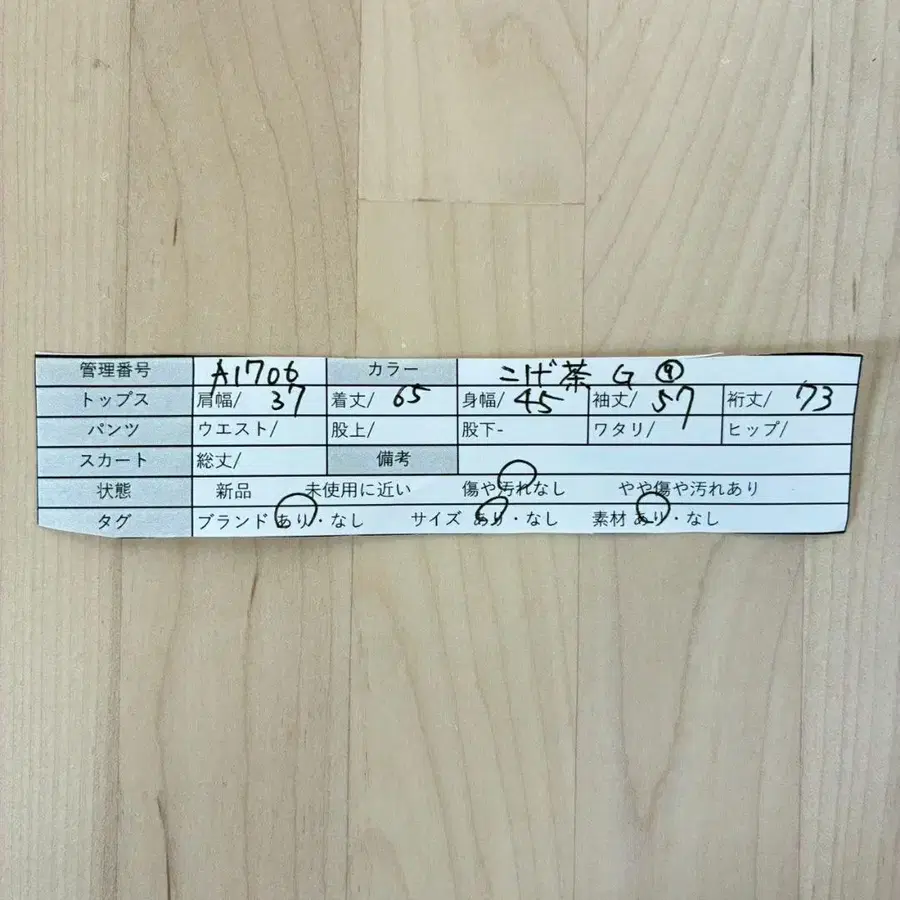 管理番号 A1706 カラー こげ茶 G ⑨
トップス 肩幅/ 37 着丈/ 65 身幅/ 45 袖丈/ 57 裄丈/ 73
パンツ ウエスト/ 股上/ 股下- ワタリ/ ヒップ/
スカート 総丈/ 備考
状態 新品 未使用に近い 傷や汚れなし やや傷や汚れあり
タグ ブランド あり・なし サイズ あり・なし 素材 あり・なし